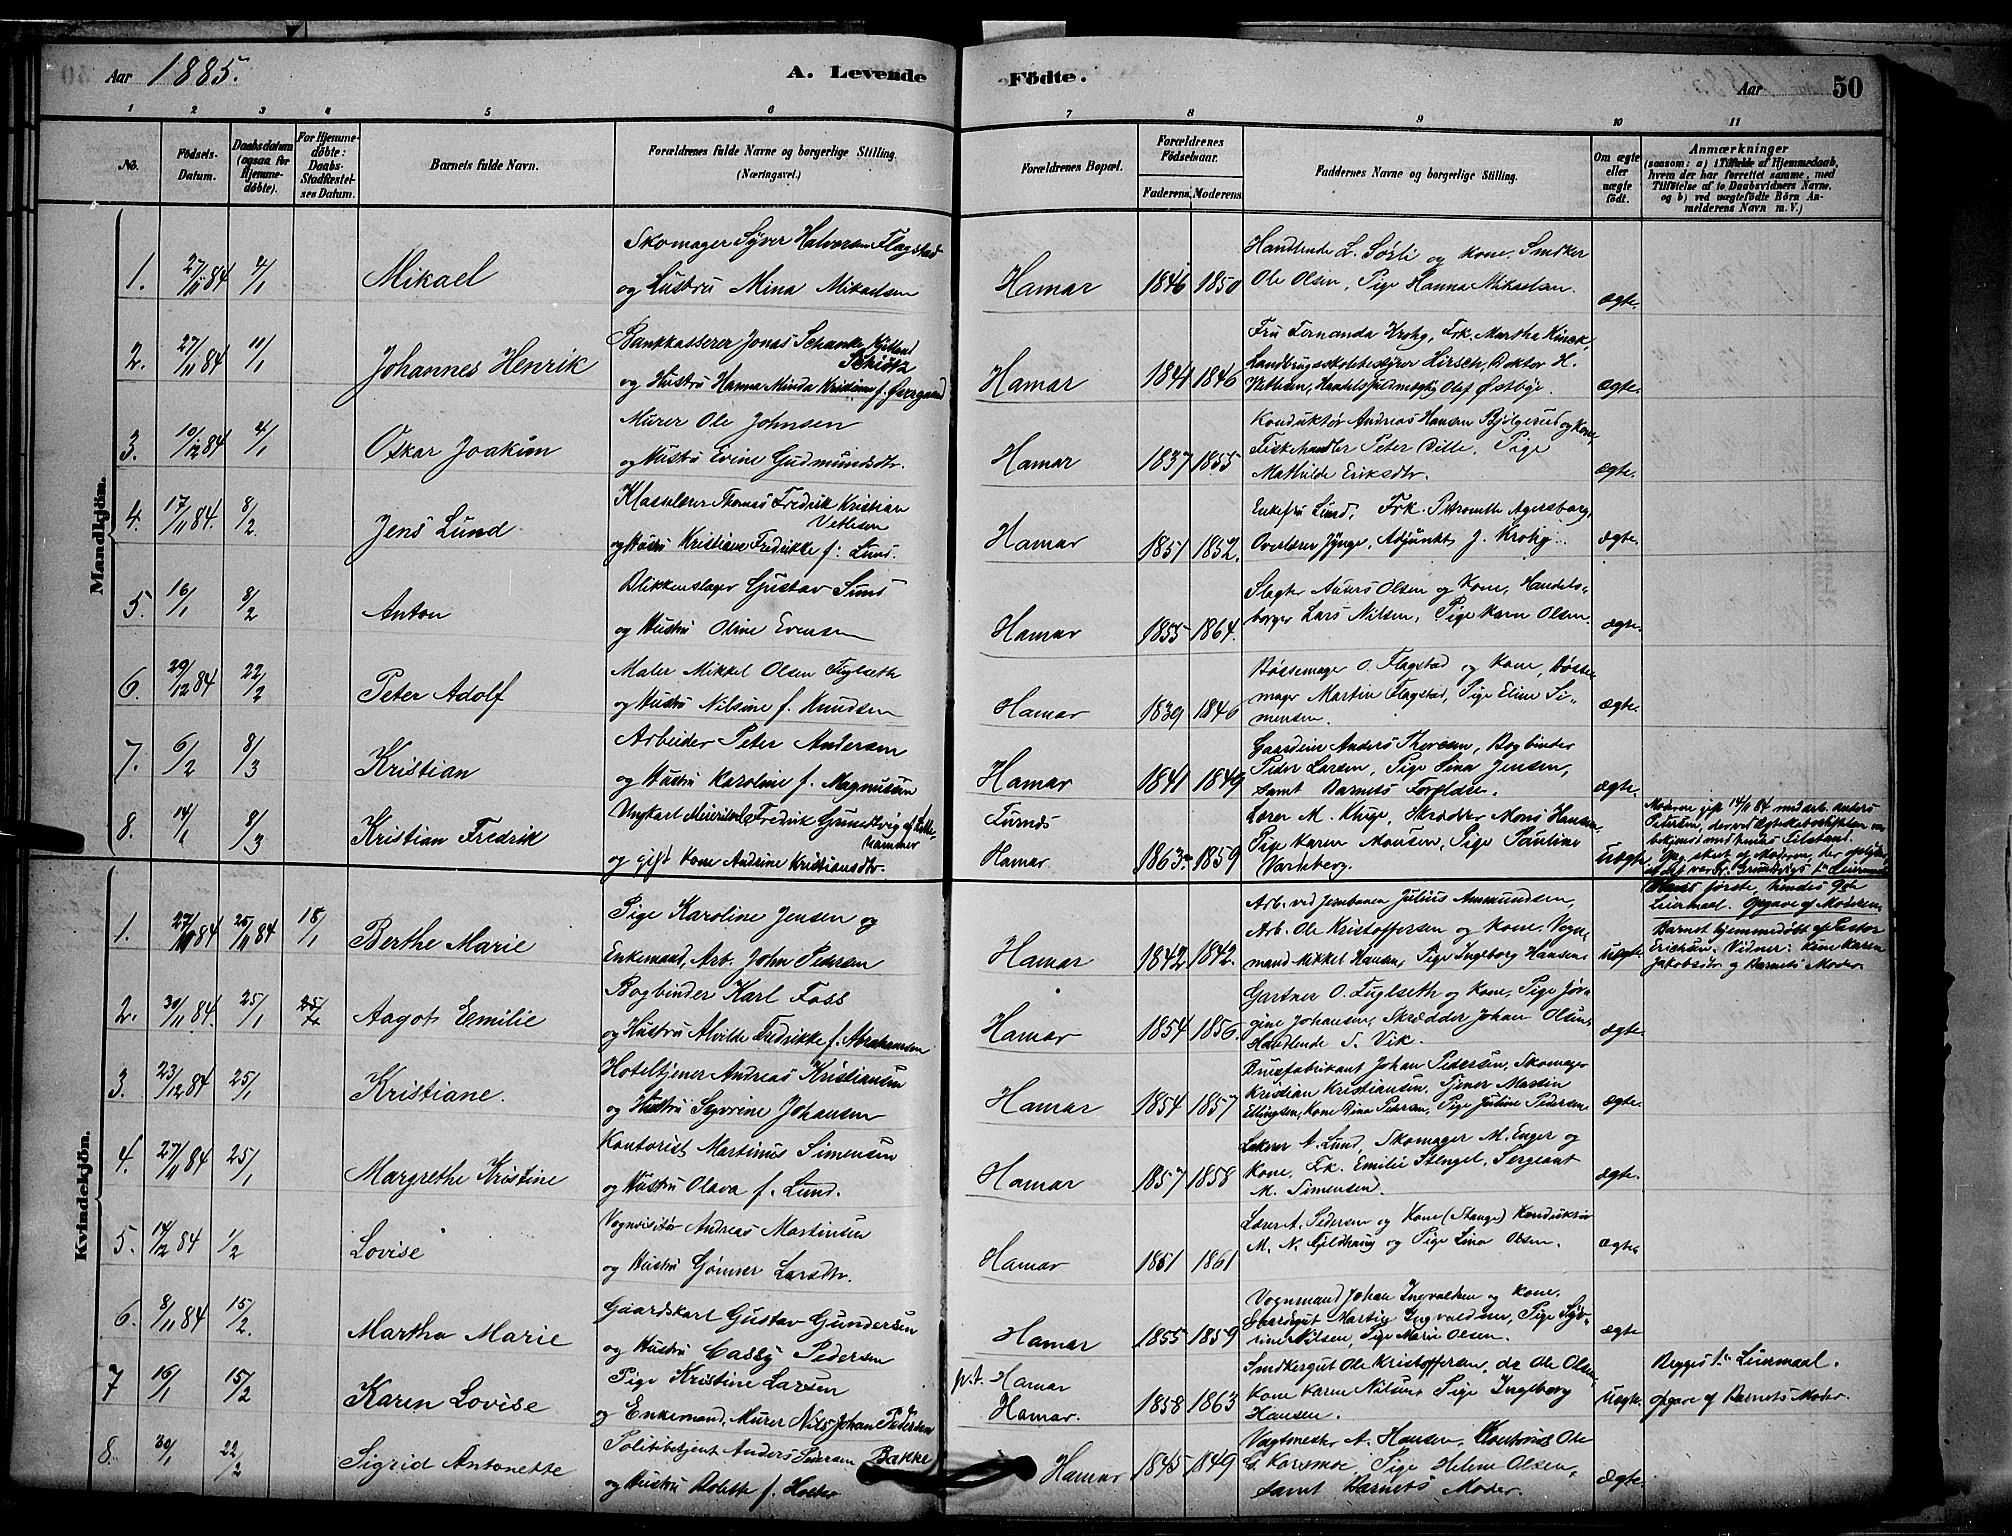 Aar 1885. A. Levende Födte. Aar 50
1 2 3 4 5 6 7 8 9 10 11
No. Födsels-Datum. Daabsdatum (ogsaa for Hjemmedøbte). For Hjemmedøbte: Daabs-Stadfæstelses Datum. Barnets fulde Navn. Forældrenes fulde Navne og borgerlige Stilling. (Næringsvei.) Forældrenes Bopæl. Forældrenes Födselsaar. Faderens. Moderens. Faddernes Navne og borgerlige Stilling. Om ægte eller uægte født. Anmærkninger (saasom: a) i Tilfælde af Hjemmedaab, hvem der har forrettet samme, med Tilföielse af to Daabsvidners Navne. og b) ved uægtefödte Börn Anmelderens Navn m. V.)
Mandkjön.
1. 27/11 84 4/1 Mikael
Skomager Syver Halvorsen Flagstad
og Hustru Mina Mikaelsen
Hamar 1846 1850
Handlende L. Sørli og Kone, Snedker
Ole Olsen, Pige Hanna Mikaelsen.
ægte.
2. 27/11 84 11/1 Johannes Henrik
Bankkasserer Jonas Schanke Kjelland
Schiøtz
og Hustru Hanna Minda Kristiane f. Øvergaard
Hamar 1841 1846
Fru Fernanda Krohg, Frk. Martha Kinck,
Landbrugsskolebestyrer Hirsch, Doktor H.
Vetlesen, Handelsfuldmægtig Olaf Østbye.
ægte.
3. 10/12 84 4/1 Oskar Joakim
Murer Ole Johnsen
og Hustru Evine Gudmundsdtr.
Hamar 1837 1855
Konduktør Andreas Hansen Bjølgerud og Kone
Fiskehandler Peter Bille, Pige
Mathilde Eriksdtr.
ægte.
4. 17/11 84. 8/2 Jens Lund
Klasselærer Thomas Fredrik Kristian
Vetlesen
og Hustru Kristiane Fredrikke f. Lund.
Hamar 1851 1852.
Enkefru Lund, Frk. Petronelle Agersborg,
Overlærer Jynge, Adjunkt J. Krohg.
ægte.
5. 16/1 8/2 Anton
Blikkenslager Gustav Sund
og Hustru Oline Evensen
Hamar 1855 1864.
Slagter Anders Olsen og Kone, Handels-
borger Lars Nilsen, Pige Karen Olsen.
ægte.
6. 29/12 84 22/2 Peter Adolf
Maler Mikkel Olsen Fuglseth
og Hustru Nilsine f. Knudsen
Hamar 1839 1846
Bøssemager O. Flagstad og Kone, Bøsse-
mager Martin Flagstad, Pige Eline Si-
mensen.
ægte.
7. 6/2 8/3 Kristian
Arbeider Peter Andersen
og Hustru Karoline f. Magnussen
Hamar 1841 1849
Gaardeier Anders Thoresen, Bogbinder
Peder Larsen, Pige Lina Jensen,
samt Barnets Forældre.
ægte.
8. 14/1 8/3 Kristian Fredrik
Ungkarl Fredrik Grundtvig af Lille-
hammer
og gift Kone Andrine Kristiansdtr.
Furnes
Hamar. 1863 1859
Lærer M. Kluge, Skrædder Mons Hansen,
Pige Karen Monsen, Pige Pauline
Vardeberg.
uægte.
Moderen gift 14/11 84 med arb. Anders
Petersen, der ved Ægteskabets stiftelse var
bekjendt med hendes Tilstand.
Opg. skeet af Moderen, der oplyser
at det var Fr. Grundtvigs 1ste Leiermaal
første, hendes 2det
Leiermaal. Opgave af Moderen.
Kvindekjön.
1. 27/11 84 25/11 84 18/1 Berthe Marie
Pige Karoline Jensen og
Enkemand, Arb. John Pedersen
Hamar 1842 1842.
Arb. ved Jernbanen Julius Ammundsen,
Arb. Ole Kristoffersen og Kone, Vogn-
mand Mikkel Hansen, Pige Ingeborg Hansen.
uægte.
Barnet hjemmedøbt af Pastor
Erichsen. Vidner: Kone Karen
Jakobsdtr og Barnets Moder.
2. 30/11 84. 25/1 25/1 Aagot Emilie
Bogbinder Karl Foss
og Hustru Alvilde Fredrikke f. Abrahamsen
Hamar 1854 1856.
Gartner O. Fuglseth og Kone, Pige Jør-
gine Johansen, Skrædder Johan Olsen,
Handlende S. Vik.
ægte.
3. 23/12 84 25/1 Kristiane.
Hoteltjener Andreas Kristiansen
og Hustru Syverine Johansen
Hamar 1854 1857
Brusfabrikant Johan Pedersen, Skomager
Kristian Kristiansen, Tjener Martin
Ellingsen, Kone Dina Pedersen, Pige Juline Pedersen.
ægte.
4. 27/11 84 25/1 Margrethe Kristine
Kontorist Martinus Simensen
og Hustru Olava f. Lund.
Hamar 1857 1858
Lakerer A. Lund, Skomager M. Enger og
Kone, Frk. Emilie Stengel, Sergeant
M. Simensen.
ægte.
5. 14/12 84 1/2 Lovise
Vognvisitør Andreas Martinsen
og Hustru Gønner Larsdtr.
Hamar 1851 1861
Lærer A. Pedersen og Kone (Stange) Konduktør
M. N. Gjeldhaug og Pige Lina Olsen.
ægte.
6. 8/11 84 15/2. Martha Marie
Gaardskarl Gustav Gundersen
og Hustru Cassy Pedersen
Hamar 1855 1859
Vognmand Johan Ingvaldsen og Kone,
Gaardgut Martin Ingvaldsen, Pige Syve-
rine Nilsen, Pige Marie Olsen.
ægte
7 16/1 15/2 Karen Lovise
Pige Kristine Larsen
og Enkemand, Murer Nils Johan Pedersen
p.t. Hamar
Hamar. 1858 1863
Snedkergut Ole Kristoffersen, do Ole Olsen,
Kone Karen Nilsen, Pige Ingeborg
Hansen.
uægte.
Begges 1ste Leiermaal.
Opgave af Barnets Moder.
8. 30/1 22/2 Sigrid Antonette
Politibetjent Anders Pedersen Bakke
og Hustru Dolette f. Holter
Hamar 1845 1849
Vagtmester A. Hansen,
G. Korsmoe, Pige Helene Olsen,
samt Barnets Moder.
ægte.